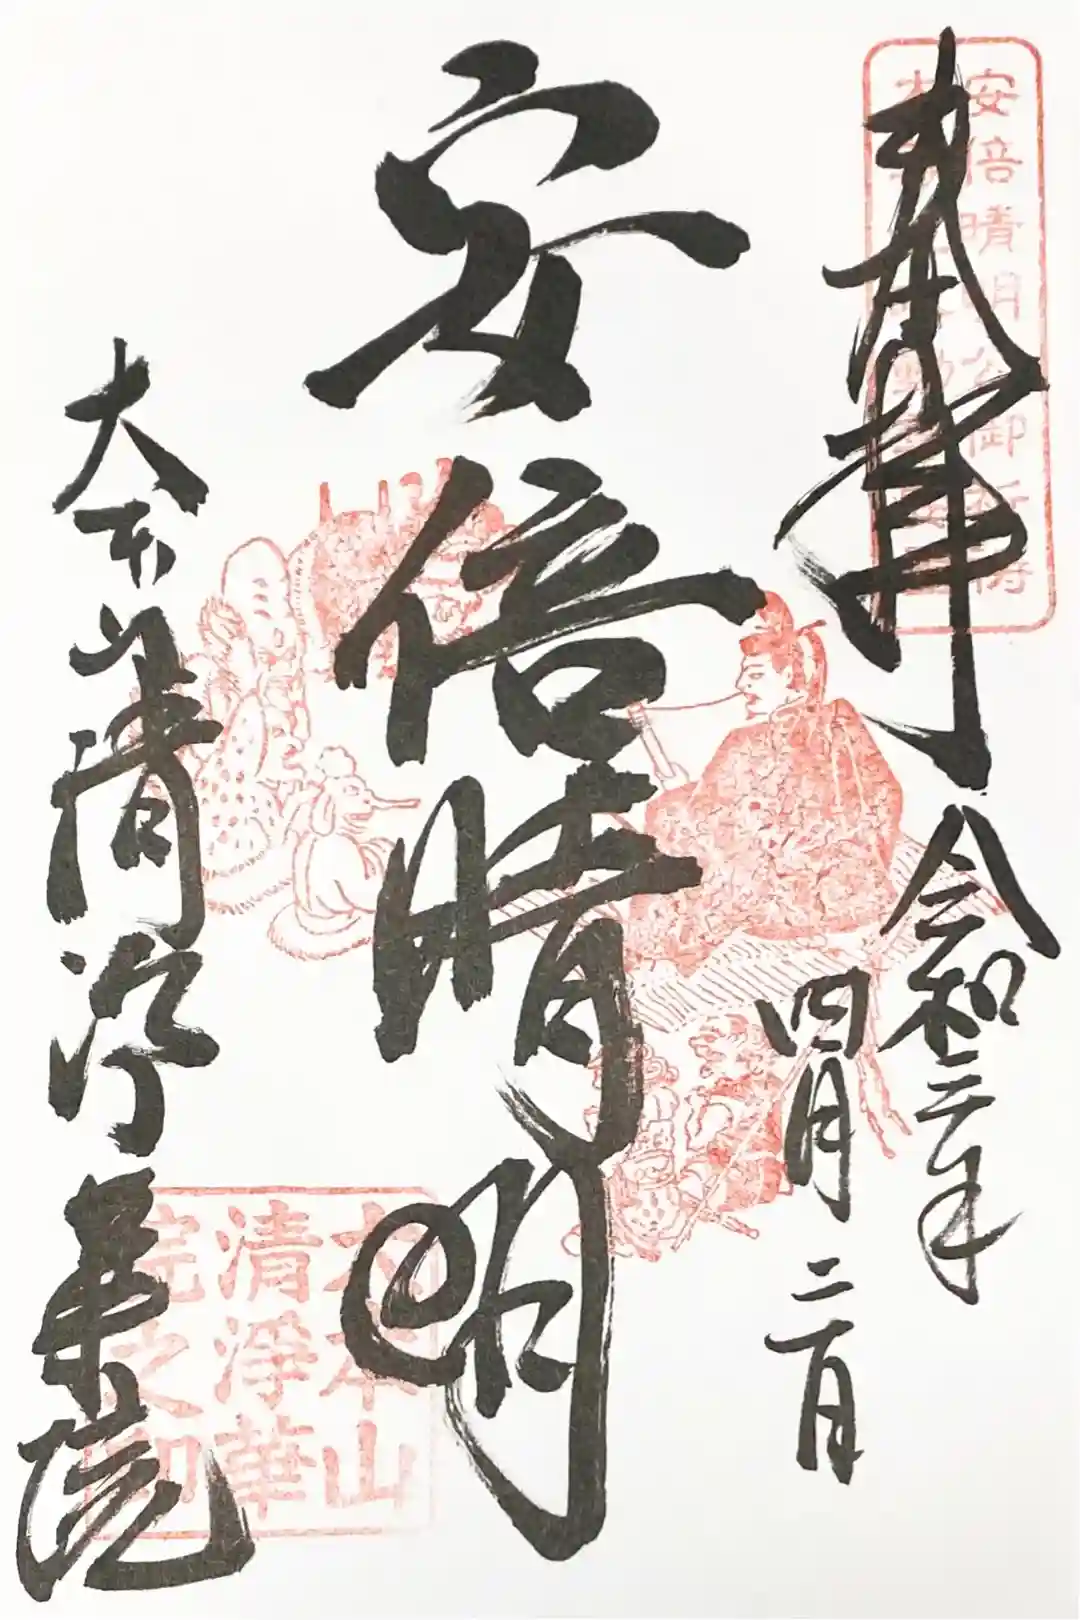 奉拝
令和三年
四月二日
安倍晴明
大本山清浄華院
安倍晴明公御所持
大本山
清淨華
院之印